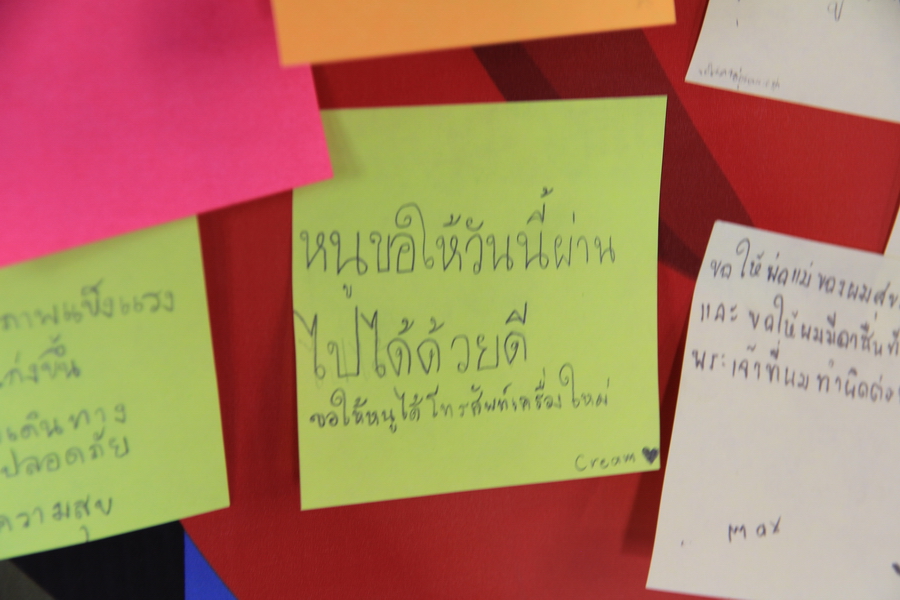 หนูขอให้วันนี้ผ่าน
ไปได้ด้วยดี
ขอให้หนูได้โทรศัพท์เครื่องใหม่
Cream
ภาพแข็งแรง
เก่งขึ้น
เดินทาง
ปลอดภัย
ความสุข
ขอให้พ่อแม่ของผม
และ ขอให้ผม
พระเจ้าที่ผมทำผิดต่อ
Max